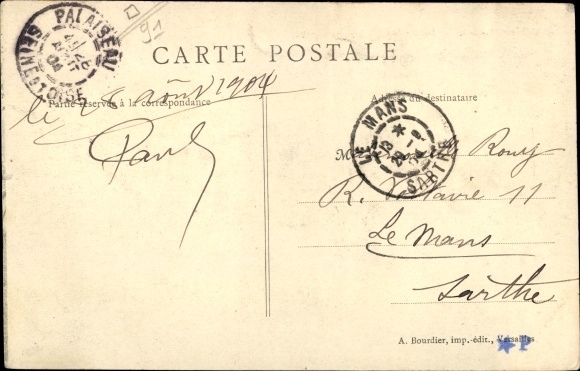 PALAISEAU
SEINE-ET-OISE
951
CARTE POSTALE
Partie réservée à la correspondance
Adresse du destinataire
le 28 août 1904
Paul
LE MANS
SARTHE
Rouy
R. Voltaire 11
Le Mans
Sarthe
A. Bourdier, imp.-édit., Versailles